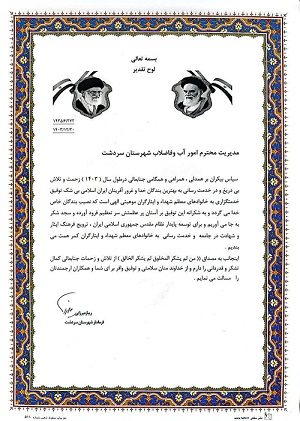 بسمه تعالی
لوح تقدیر
۱۴۰۳/۱۲/۲۰
مدیریت محترم امور آب وفاضلاب شهرستان سردشت
سپاس بیکران بر همدلی ، همراهی و همگامی جنابعالی درطول سال ( ۱۴۰۳ ) زحمت و تلاش
بی دریغ و در خدمت رسانی به بهترین بندگان خدا و غرور آفرینان ایران اسلامی بی شک توفیق
خدمتگزاری به خانوادهای معظم شهداء و ایثارگران موهبتی الهی است که نصیب بندگان خاص
خدا می گردد و به شکرانه این توفیق بر آستان پر عظمتش سر تعظیم فرود آورده و سجد شکر
به جا می آوریم و برای توسعه پایدار نظام مقدس جمهوری اسلامی ایران ، ترویج فرهنگ ایثار
و شهادت در جامعه و خدمت رسانی به خانوادهای معظم شهداء و ایثارگران کمر همت می
بندیم .
اینجانب به مصداق (( من لم یشکر المخلوق لم یشکر الخالق )) از تلاش و زحمات جنابعالی کمال
تشکر و قدردانی را دارم و از خداوند منان سلامتی و توفیق وافر برای شما و همکاران ارجمندتان
را مسالت می نمایم .
فرماندار شهرستان سردشت